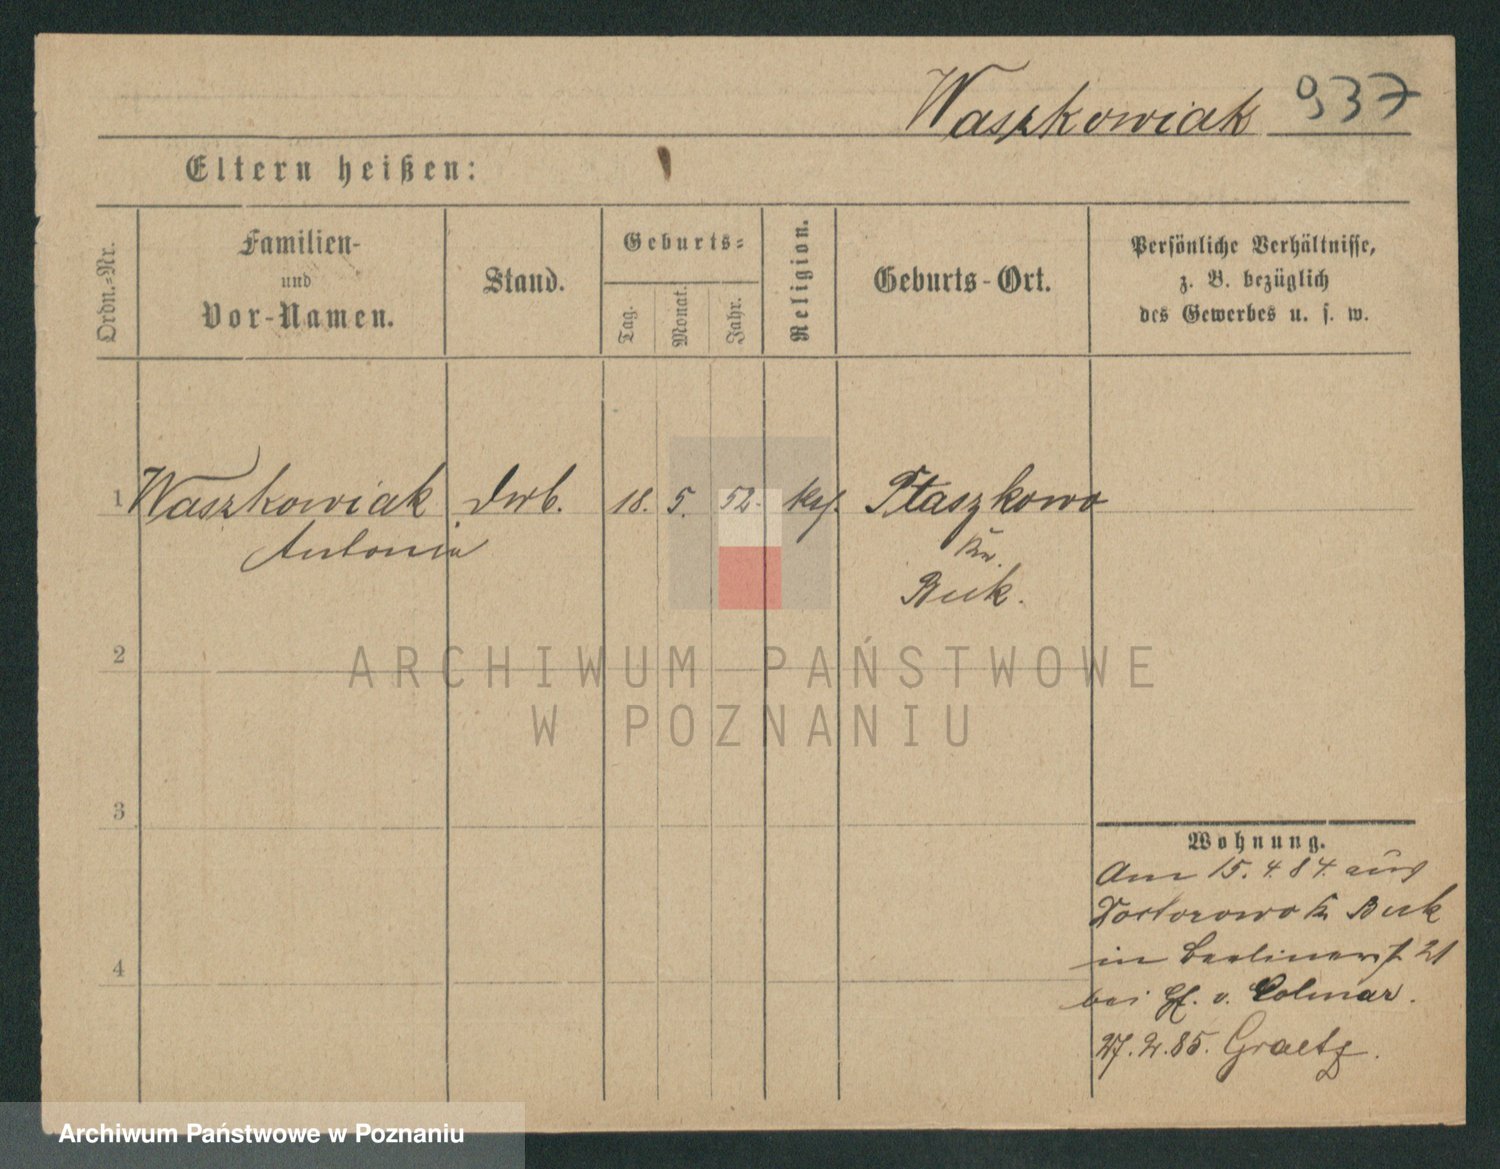 Waszkowiak 937
Eltern heißen:
Ordn.-Nr.
Familien-
und
Vor-Namen.
Stand.
Geburts-
Tag.
Monat.
Jahr.
Religion.
Geburts-Ort.
Persönliche Verhältnisse,
z. B. bezüglich
des Gewerbes u. s. w.
1 Waszkowiak 18. 5. 52. Ptaszkowo
Antonia Kr.
Buk.
2
ARCHIWUM PAŃSTWOWE
W POZNANIU
3
4
Wohnung.
Am 15. 4. 84. aus
Kr Buk
in Berlinerst 21
bei v. Colmar.
27. 2. 85. Graetz.
Archiwum Państwowe w Poznaniu